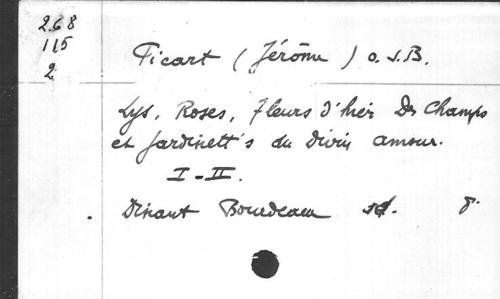 268
115
2
Picart (Jérôme) O.S.B.
Lys, Roses, Fleurs d'hier Des Champs
et Jardinett's du Divin amour.
I - II.
Dinant Bourdeaux sd. 8.